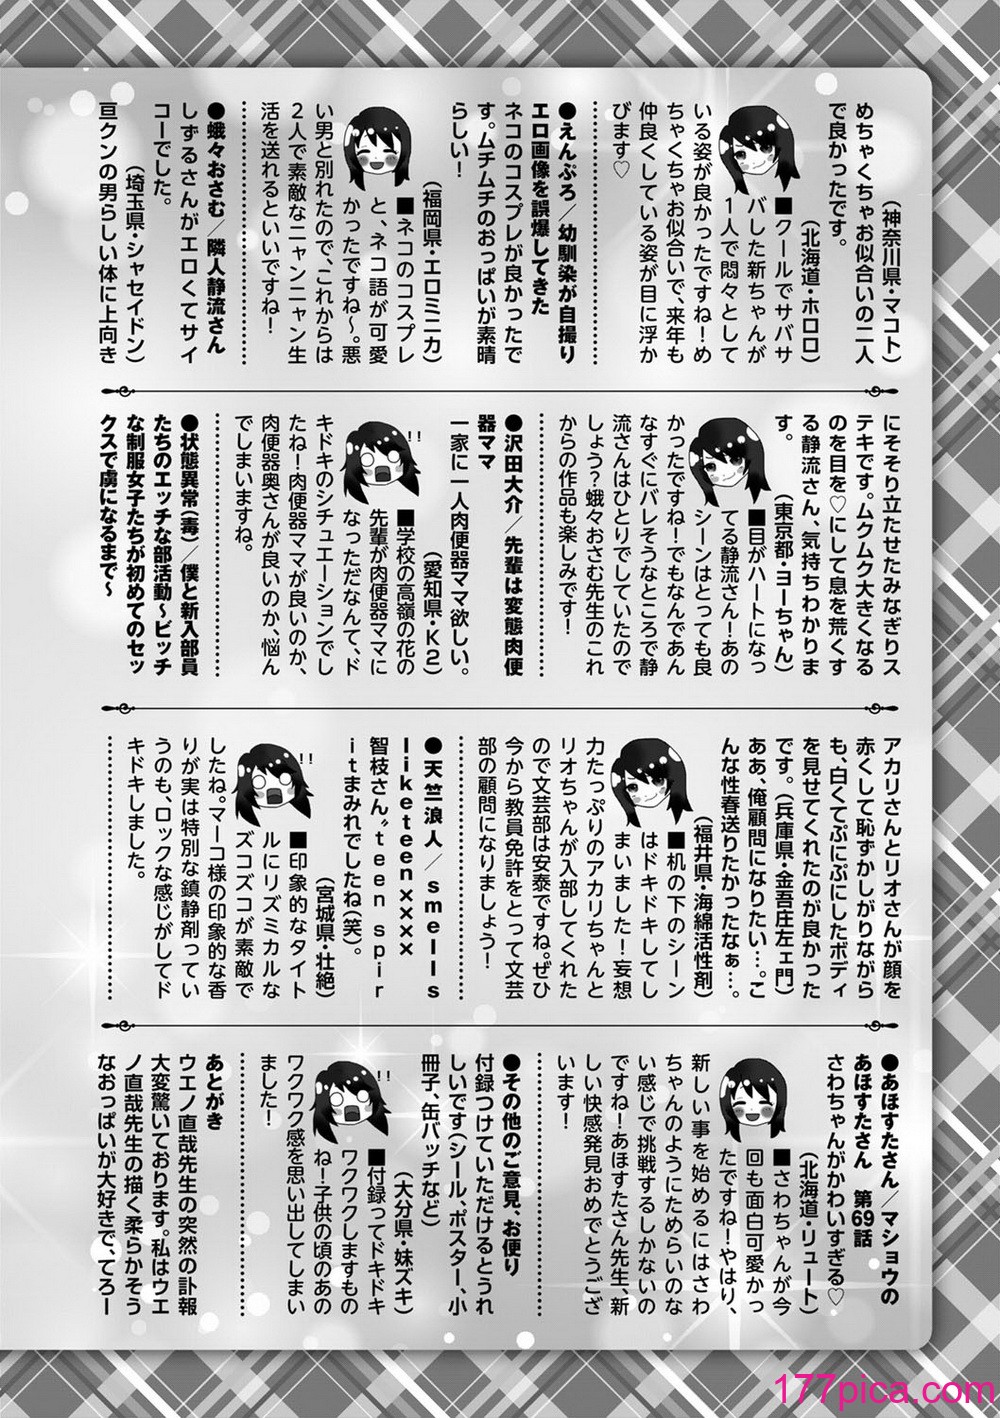 めちゃくちゃお似合いの二人
で良かったです。
（神奈川県・マコト）
（北海道・ホロロ）
■クールでサバサ
バした新ちゃんが
1人で悶々として
いる姿が良かったですね！め
ちゃくちゃお似合いで、来年も
仲良くしている姿が目に浮か
びます♡
●えんぷろ／幼馴染が自撮り
エロ画像を誤爆してきた
ネコのコスプレが良かったで
す。ムチムチのおっぱいが素晴
らしい！
（福岡県・エロミニカ）
■ネコのコスプレ
と、ネコ語が可愛
かったですね～。悪
い男と別れたので、これからは
2人で素敵なニャンニャン生
活を送れるといいですね！
●蛾々おさむ／隣人静流さん
しずるさんがエロくてサイ
コーでした。
（埼玉県・シャセイドン）
亘クンの男らしい体に上向き
にそそり立たせたみなぎりス
テキです。ムクムク大きくなる
のを目を♡にして息を荒くす
る静流さん、気持ちわかりま
す。
（東京都・ヨーちゃん）
■目がハートになっ
てる静流さん！あの
シーンはとっても良
かったですね！でもなんであん
なすぐにバレそうなところで静
流さんはひとりでしていたので
しょう？蛾々おさむ先生のこれ
からの作品も楽しみです！
●沢田大介／先輩は変態肉便
器ママ
一家に一人肉便器ママ欲しい。
（愛知県・K2）
■学校の高嶺の花の
先輩が肉便器ママに
なっただなんて、ド
キドキのシチュエーションでし
たね！肉便器ママが良いのか、
肉便器奥さんが良いのか、悩ん
でしまいますね。
●状態異常（毒）／僕と新入部員
たちのエッチな部活動～ビッチ
な制服女子たちが初めてのセッ
クスで虜になるまで～
アカリさんとリオさんが顔を
赤くして恥ずかしがりながら
も、白くてぷにぷにしたボディ
を見せてくれたのが良かった
です。（兵庫県・金吾庄左ェ門）
ああ、俺顧問になりたい…。こ
んな性春送りたかったなぁ…。
（福井県・海綿活性剤）
■机の下のシーン
はドキドキしてし
まいました！妄想
力たっぷりのアカリちゃんと
リオちゃんが入部してくれた
ので文芸部は安泰ですね。ぜひ
今から教員免許をとって文芸
部の顧問になりましょう！
●天竺浪人／smells
liketeenxxxx
智枝さん〝teen spir
itまみれでしたね（笑）。
（宮城県・壮絶）
■印象的なタイト
ルにリズミカルな
ズコズコが素敵で
したね。マーコ様の印象的な香
りが実は特別な鎮静剤ってい
うのも、ロックな感じがしてド
キドキしました。
●あほすたさん／マショウの
あほすたさん 第69話
さわちゃんがかわいすぎる♡
（北海道・リュート）
■さわちゃんが今
回も面白可愛かっ
たですね！やはり、
新しい事を始めるにはさわ
ちゃんのようにためらいのな
い感じで挑戦するしかないの
ですね！あほすたさん先生、新
しい快感発見おめでとうござ
います！
●その他のご意見、お便り
付録つけていただけるとうれ
しいです（シール、ポスター、小
冊子、缶バッチなど）
（大分県・妹ズキ）
■付録ってドキドキ
ワクワクしますもの
ね！子供の頃のあの
ワクワク感を思い出してしまい
ました！
あとがき
ウエノ直哉先生の突然の訃報
大変驚いております。私はウエ
ノ直哉先生の描く柔らかそう
なおっぱいが大好きで、てろー
177pica.com